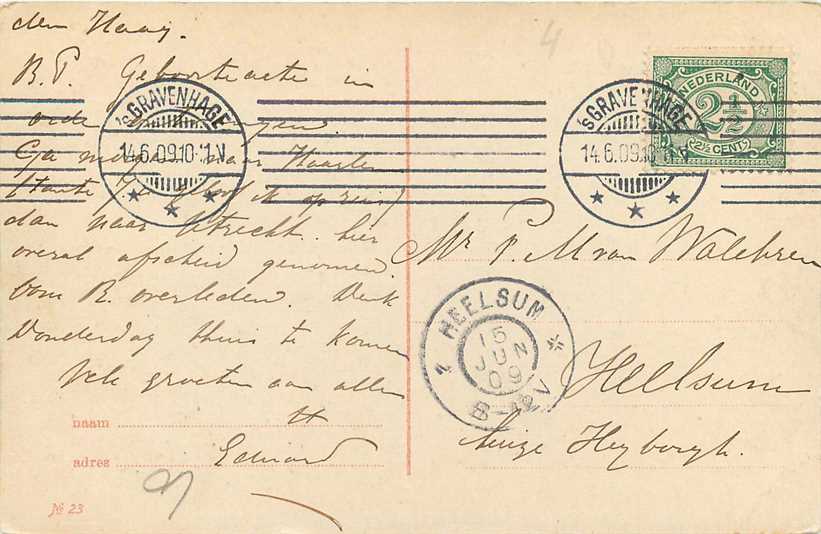 den Haag.
B.P. Geboorteacte in
orde
Ga morgen naar Haarlem
(tante
dan naar Utrecht. hier
overal afscheid genomen.
Oom B. overleden. Denk
Donderdag thuis te komen
Vele groeten aan allen
tt
Eduard
naam
adres
№ 23
'sGRAVENHAGE
14.6.09.10-11V
NEDERLAND
2½
2½ CENT
'sGRAVENHAGE
14.6.09.10-11V
Mr P. M van Walchren
HEELSUM
15
JUN
09
8-12V
Heelsum
huize Heyborgh.
4